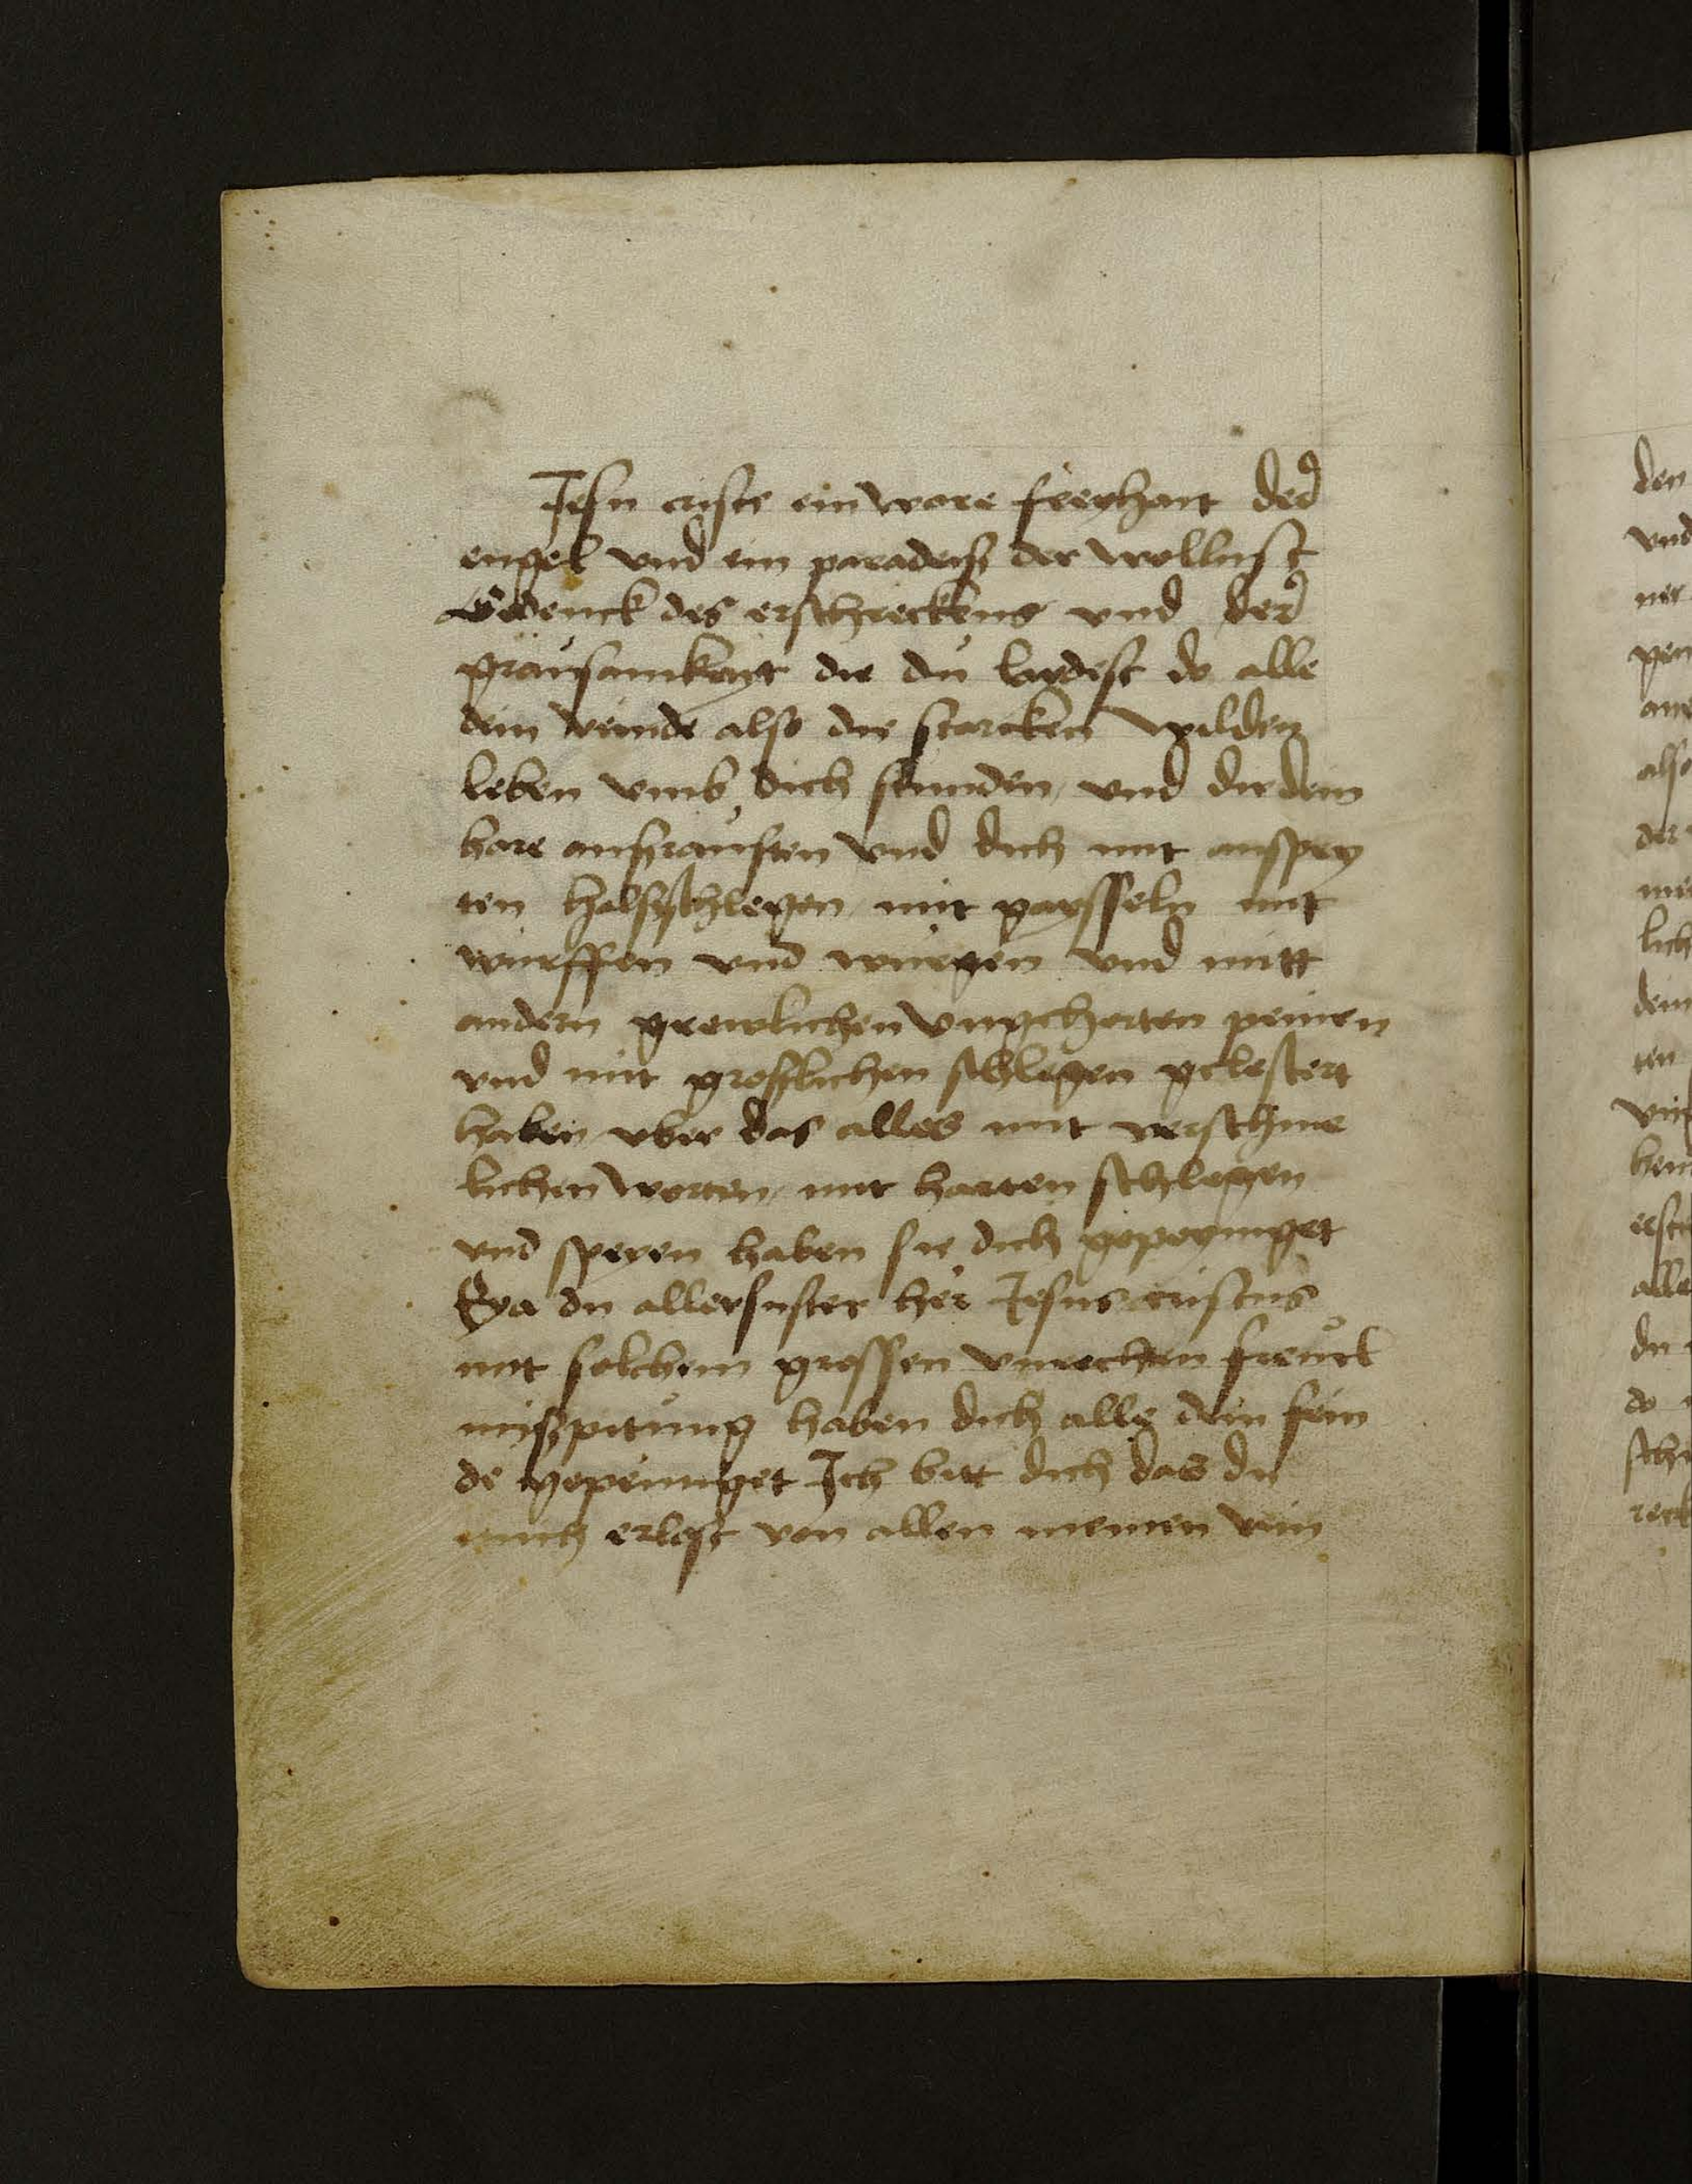 Jesu criste ein wore freyhait der
engel vnd ein paradeiß der wollust
Gedenck des erschreckens vnd der
grausamkeyt die du liedest do alle
dein veinde also die starcken wilden
leben vmb dich stunden vnd dir dein
hare außrausten vnd dich mit außpey
ten halsschlegen mit gaysseln mit
würffen vnd würgen vnd mitt
andern grewlichen vngehorten peinen
vnd mit grosslichen schlegen gelestert
haben vber das alles mit verschme
lichen worten mit harten schlegen
vnd speyen haben sie dich gepeyniget
Eya du allersuster her Jesus cristus
mit solchem grossen vnrechten freuel
mißpitung haben dich alle dein fein
de gepeiniget Ich bitt dich das du
mich erlost von allen meinen vein